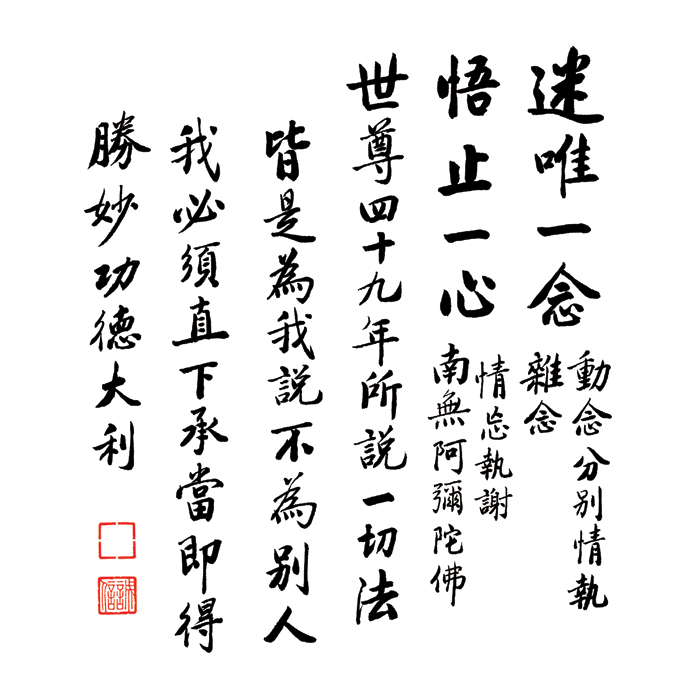 迷唯一念
動念分別情執
雜念
悟止一心
情忘執謝
南無阿彌陀佛
世尊四十九年所説一切法
皆是為我説不為別人
我必須直下承當即得
勝妙功德大利